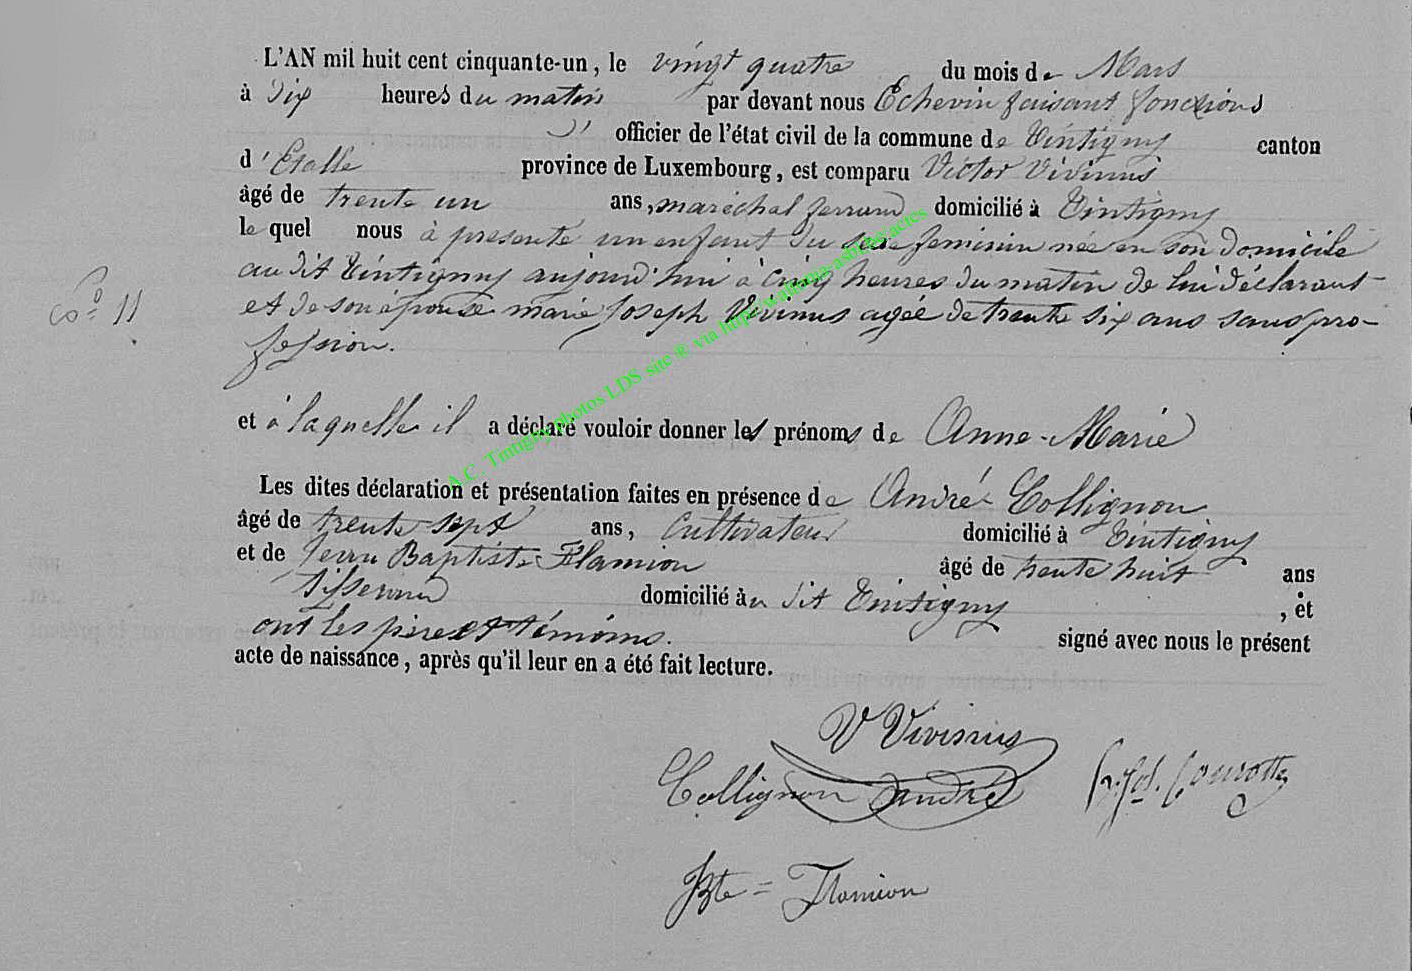 L'AN mil huit cent cinquante-un, le vingt quatre du mois de Mars
à dix heures du matin par devant nous Echevin faisant fonctions
d' officier de l'état civil de la commune de Tintigny canton
d'Etalle province de Luxembourg, est comparu Victor Vivinus
âgé de trente un ans, maréchal ferrand domicilié à Tintigny
le quel nous à presenté un enfant du sexe feminin née en son domicile
au dit Tintigny aujourd'hui à cinq heures du matin de lui déclarant
et de son épouse marie Joseph Vivinus agée de trente six ans sans pro-
fession.
N° 11
et à laquelle il a déclaré vouloir donner les prénoms de Anne-Marie
Les dites déclaration et présentation faites en présence de André Collignon
âgé de trente-sept ans, cultivateur domicilié à Tintigny
et de Jean Baptiste Flamion âgé de trente huit ans
tisserand domicilié au dit Tintigny, et
ont les père et témoins. signé avec nous le présent
acte de naissance, après qu'il leur en a été fait lecture.
V Vivinus
Collignon andré
JBte = Flamion
A.C. Tintigny photos LDS site ® via http://www.